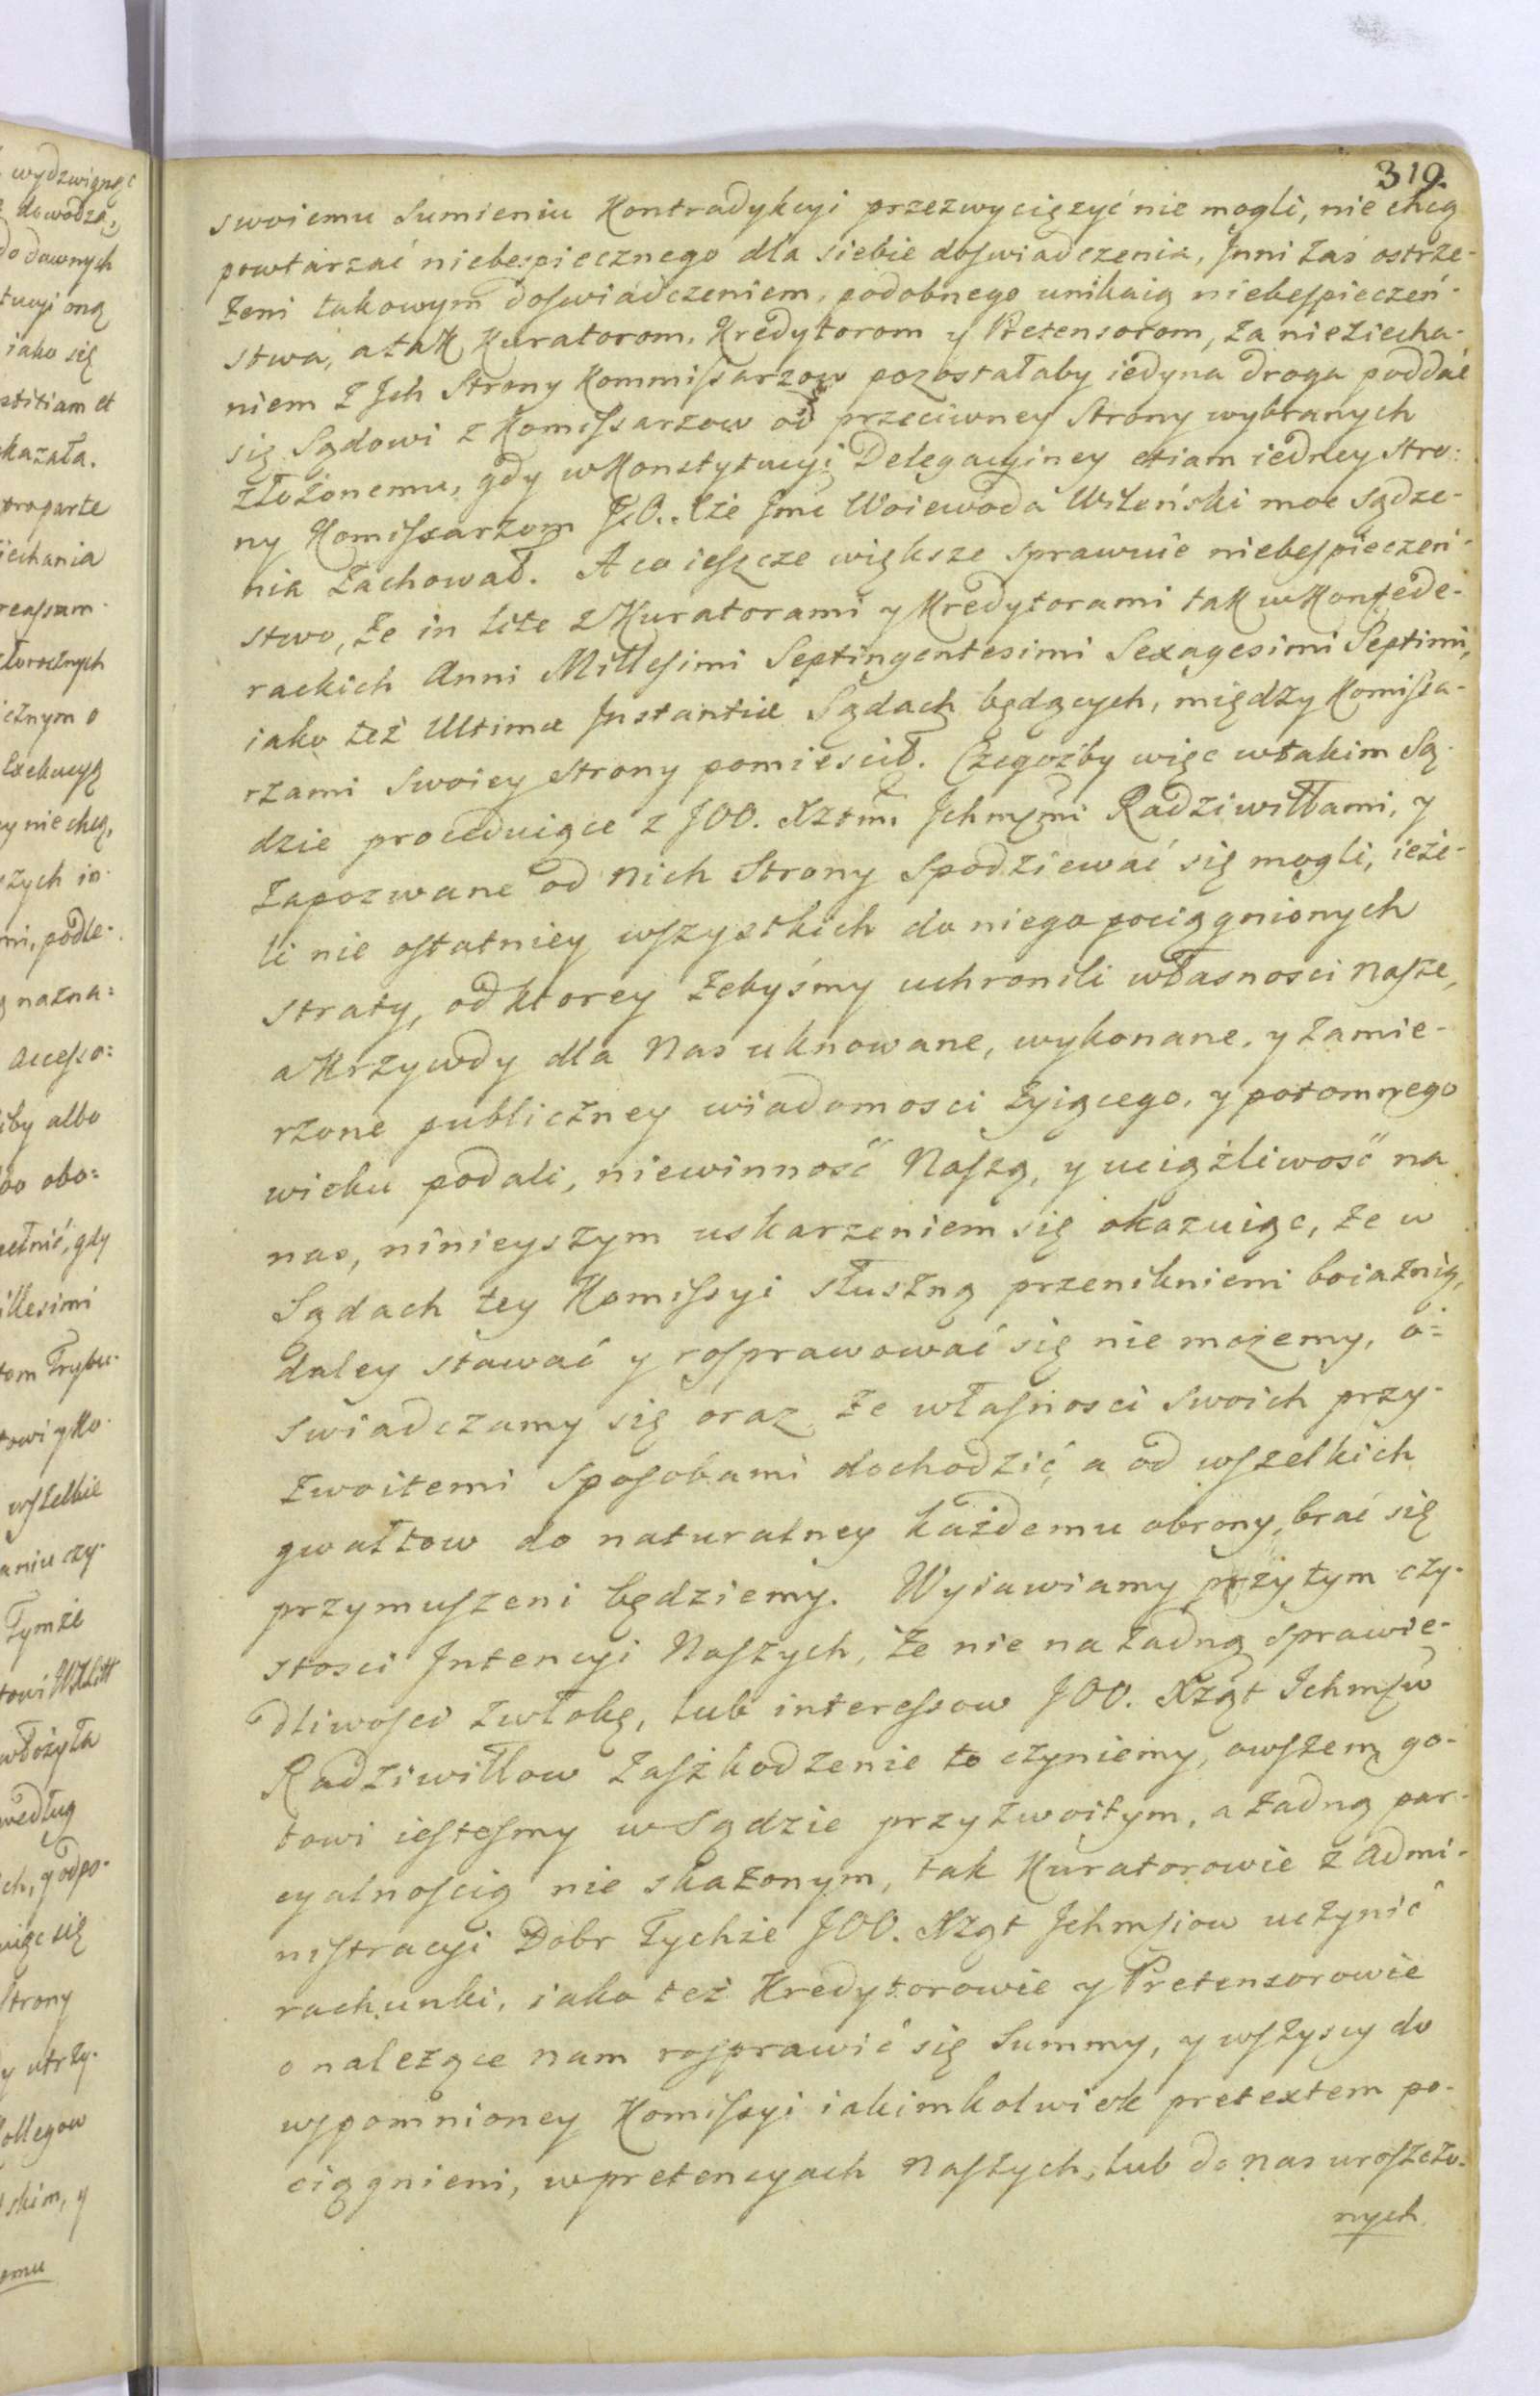 319.
swoiemu Sumieniu Kontradykcyi przezwyciężyć nie mogli, nie chcą
powtarzać niebespiecznego dla siebie doswiadczenia, Jnni zas ostrze-
żeni takowym doswiadczeniem, podobnego unikaią niebespieczeń-
stwa, a tak Kuratorom, Kredytorom y Pretensorom, za nieziecha-
niem z Jch Strony Kommissarzow pozostałaby iedyna droga poddać
się Sądowi z Komissarzow od przeciwney Strony wybranych
złożonemu, gdy w Konstytucyi Delegacyiney etiam iedney stro:
ny Komissarzom J.O. Xże Jmć Woiewoda Wileński moc sądze-
nia zachował. A co ieszcze większe sprawuie niebespieczeń-
stwo, że in lite z Kuratorami y Kredytorami tak w Konfede-
rackich Anni Millesimi Septingentesimi Sexagesimi Septimi,
iako też Ultimæ Jnstantiæ Sądach będących, między Komissa-
rzami swoiey strony pomieścił. Czegożby więc w takim Są-
dzie proceduiące z JOO. Xżtmi Jchmćmi Radziwiłłami, y
zapozwane od nich Strony spodziewać się mogli, ieże-
li nie ostatniey wszystkich do niego pociągnionych
straty, od ktorey żebyśmy uchronili własnosci nasze,
a Krzywdy dla Nas uknowane, wykonane, y zamie-
rzone publiczney wiadomosci żyiącego, y potomnego
wieku podali, niewinność Naszą, y uciążliwość na
nas, ninieyszym uskarzeniem się okazuiąc, że w
Sądach tey Komissyi słuszną przeniknieni boiaźnią,
daley stawać y rosprawować się nie możemy, o=
swiadczamy się oraz że własnosci swoich przy-
zwoitemi sposobami dochodzić, a od wszelkich
gwałtow do naturalney każdemu obrony, brać się
przymuszeni będziemy. Wyiawiamy przytym czy-
stosci Jntencyi Naszych, że nie na żadną sprawie-
dliwosci zwłokę, lub interessow JOO. Xżąt Jchmciw
Radziwiłłow zaszkodzenie to czyniemy, owszem go-
towi iestesmy w Sądzie przyzwoitym, a żadną par-
cyalnoscią nie skażonym, tak Kuratorowie z Admi-
nistracyi Dobr Tychże JOO. Xżąt Jchmsiow uczynić
rachunki, iako też Kredytorowie y Pretensorowie
o należące nam rosprawić się Summy, y wszyscy do
wspomnioney Komissyi iakimkolwiek pretextem po-
ciągnieni, w pretencyach naszych, lub do nas uroszczo-
nych